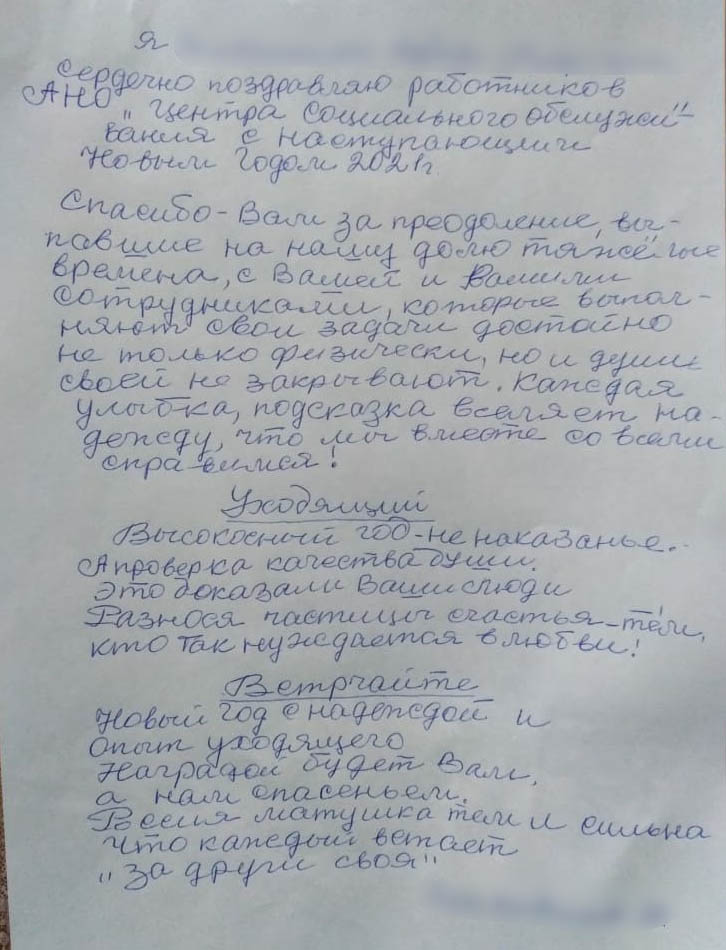 я
Сердечно поздравляю работников
АНО "Центра социального обслужи"-
вания с наступающими
Новым Годом 2021г.
Спасибо - Вам за преодоление, вы-
павшие на нашу долю тяжёлые
времена, с Вашей и Вашими
сотрудниками, которые выпол-
няют свои задачи достойно
не только физически, но и души
своей не закрывают. Каждая
улыбка, подсказка вселяет на-
дежду, что мы вместе со всеми
справимся!
Уходящий
Высокосный год - не наказанье.
А проверка качества души.
Это доказали Ваши люди
Разнося частицы счастья - тем,
кто так нуждается в любви!
Встрчайте
Новый год с надеждой и
Опыт уходящего
Наградой будет Вам,
а нам спасеньем.
Россия матушка тем и сильна
что каждый встает
"за други своя"